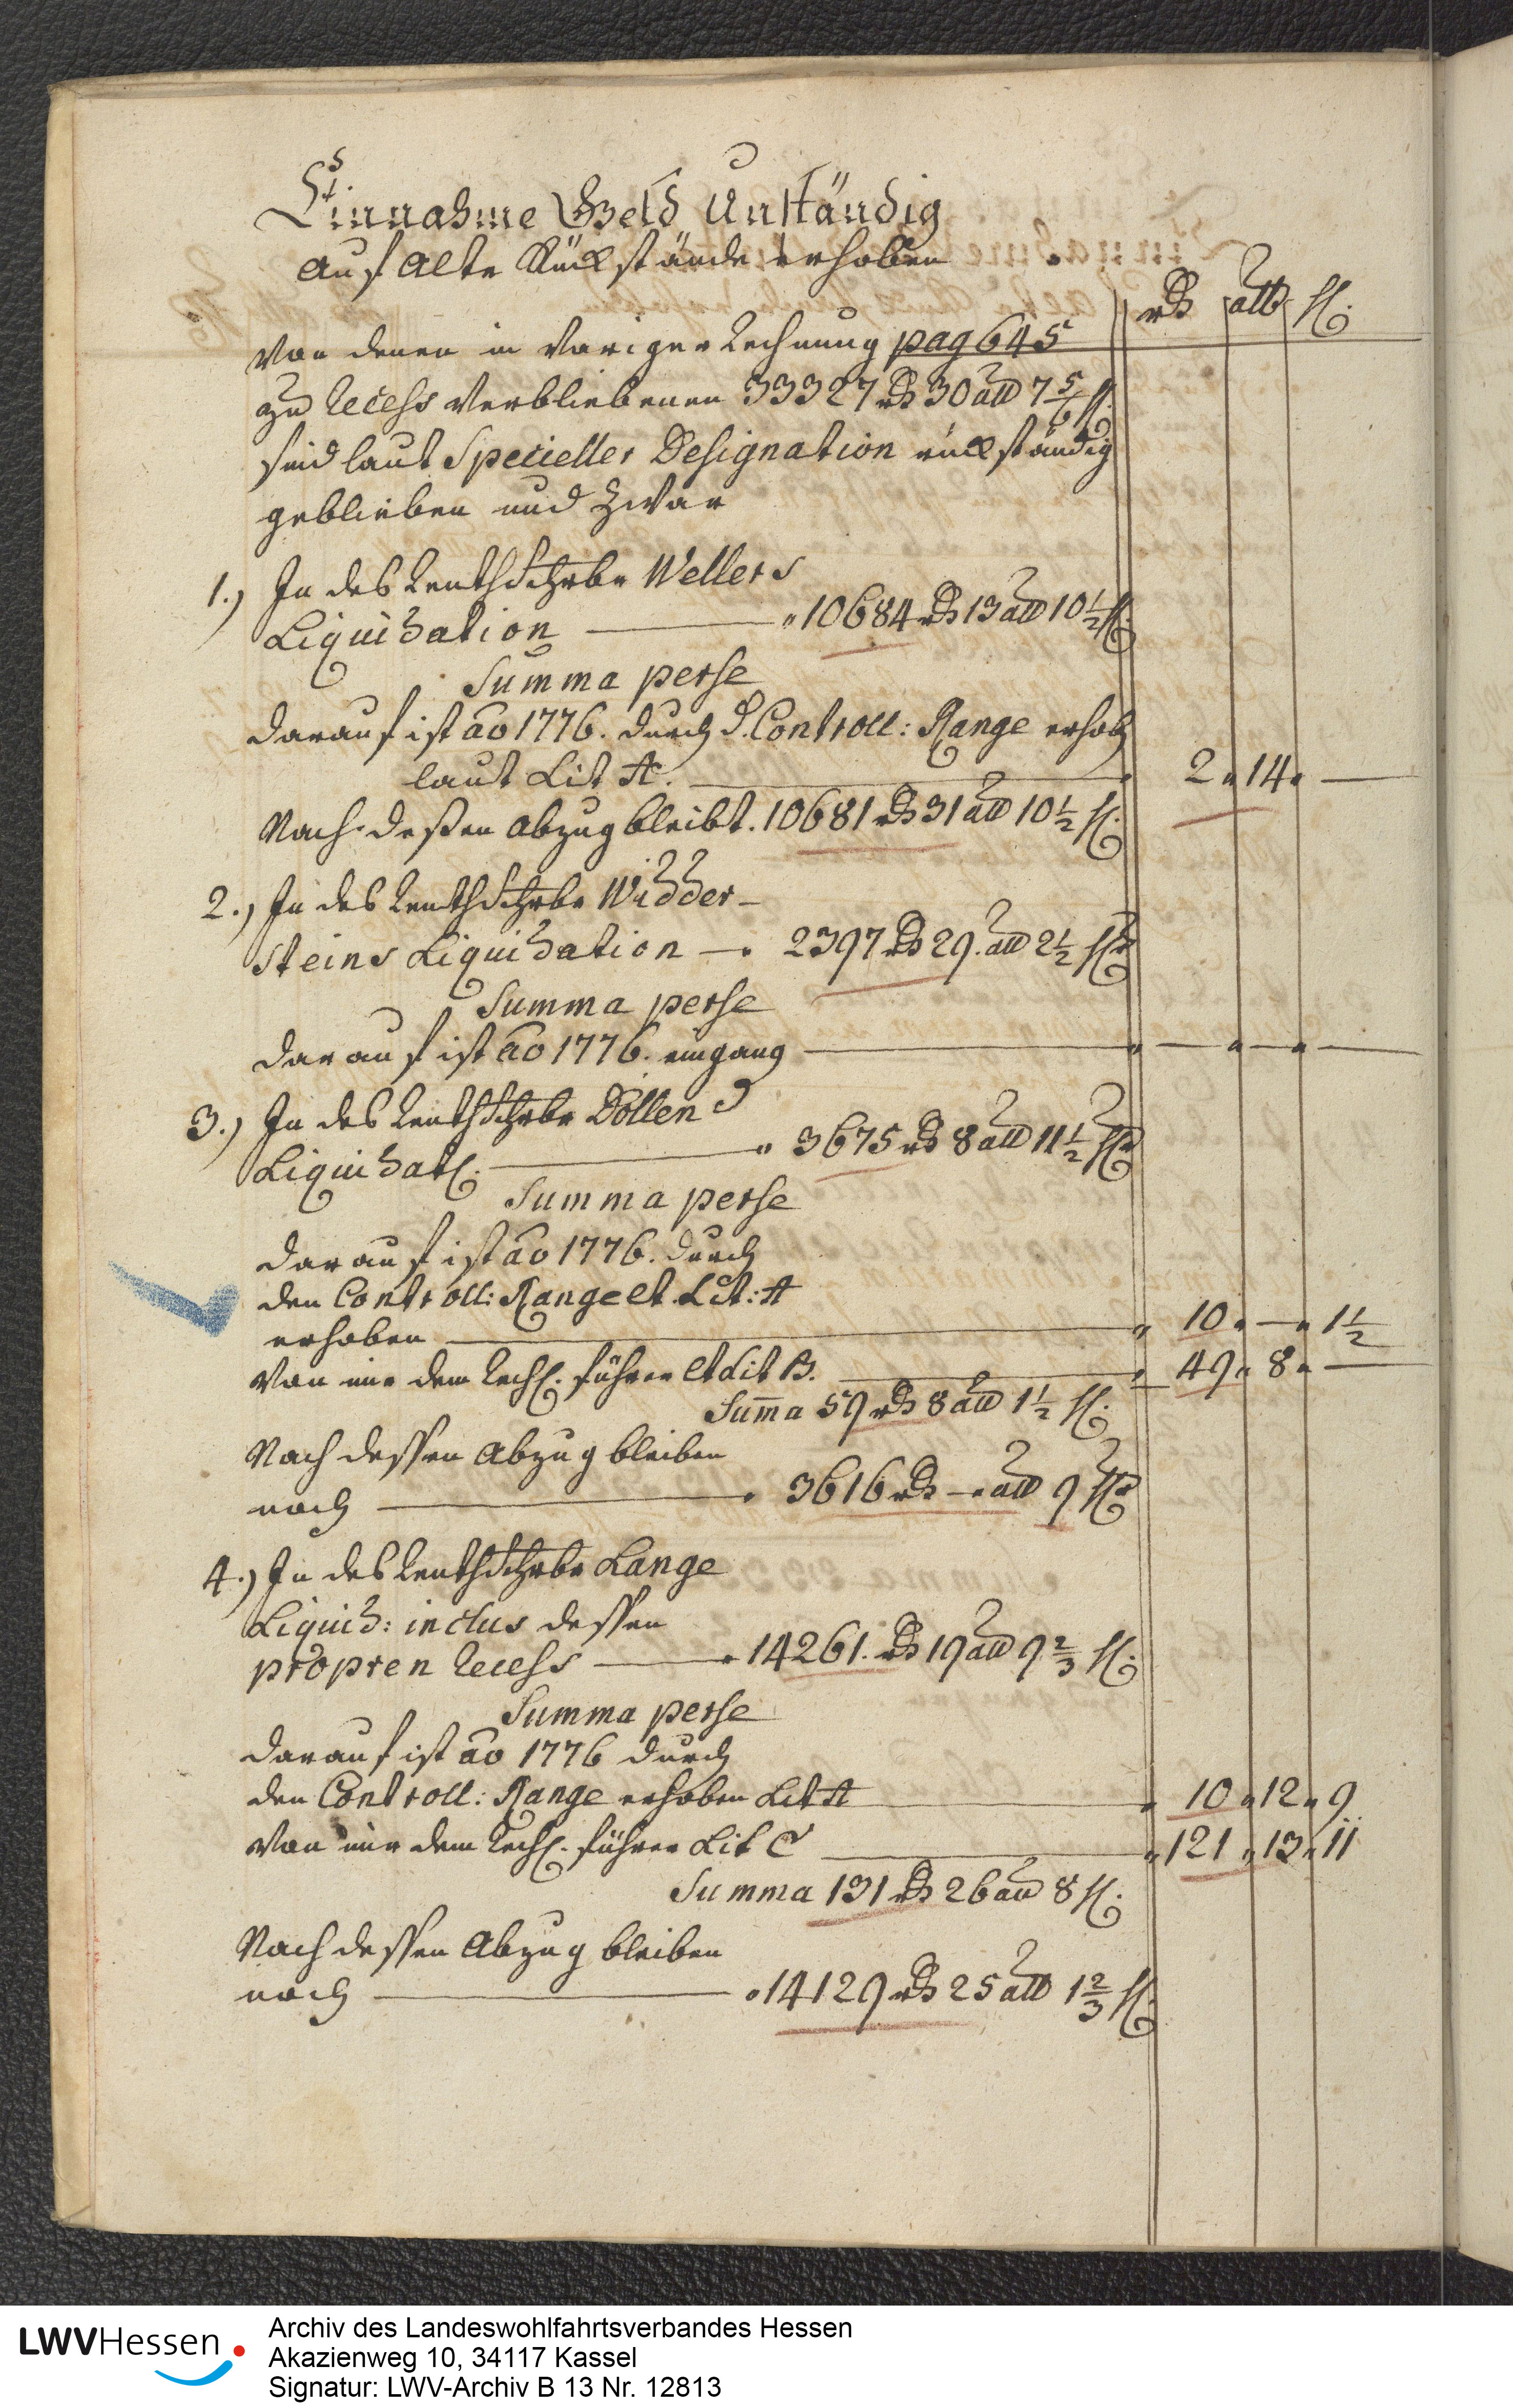 Einnahme Geld Unständig
auf alte Rückstände erhoben
rth alb hl.
Von denen in voriger Rechnung pag 645
zu Recess verbliebenen 33327 rth 30 alb 7 5/6 hl.
sind laut Specieller Designation rückständig
geblieben und zwar
1.) In des Renthschrbr Wellers
Liquidation — 10684 rth 13 alb 10 1/2 hl.
Summa perse
darauf ist ao 1776. durch d. Controll: Range erhob
laut Lit A. — 2 14 —
Nach deßen abzug bleibt. 10681 rth 31 alb 10 1/2 hl.
2.) In des Renthschrbr Widder-
steins Liquidation — 2397 rth 29. alb 2 1/2 hl
Summa perse
darauf ist ao 1776. eingang — — — —
3.) In des Renthschrbr Döllen
Liquidat. — 3675 rth 8 alb 11 1/2 hl
Summa perse
darauf ist ao 1776. durch
den Controll: Range lt. Lit: A
erhoben — 10 — 1 1/2
Von mir dem Rech. führer lt Lit B. — 49 8 —
Summa 59 rth 8 alb 1 1/2 hl.
Nach dessen Abzug bleiben
noch — 3616 rth — alb 9 hl
4.) In des Renthschrbr Lange
Liquid: inclus dessen
propren Recess — 14261. rth 19 alb 9 2/3 hl.
Summa perse
darauf ist ao 1776 durch
den Controll: Range erhoben Lit A — 10 12 9
Von mir dem Rech. führer Lit C — 121 13 11
Summa 131 rth 26 alb 8 hl.
Nach dessen Abzug bleiben
noch — 14129 rth 25 alb 1 2/3 hl.
LWVHessen
Archiv des Landeswohlfahrtsverbandes Hessen
Akazienweg 10, 34117 Kassel
Signatur: LWV-Archiv B 13 Nr. 12813